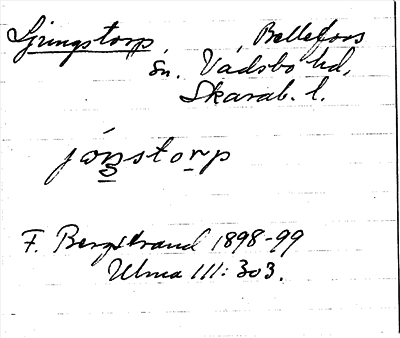 Ljungstorp, Bellefors
sn. Vadsbo hd,
Skarab. l.
jónstorp
F. Bergstrand 1898-99
Ulma 111: 303.